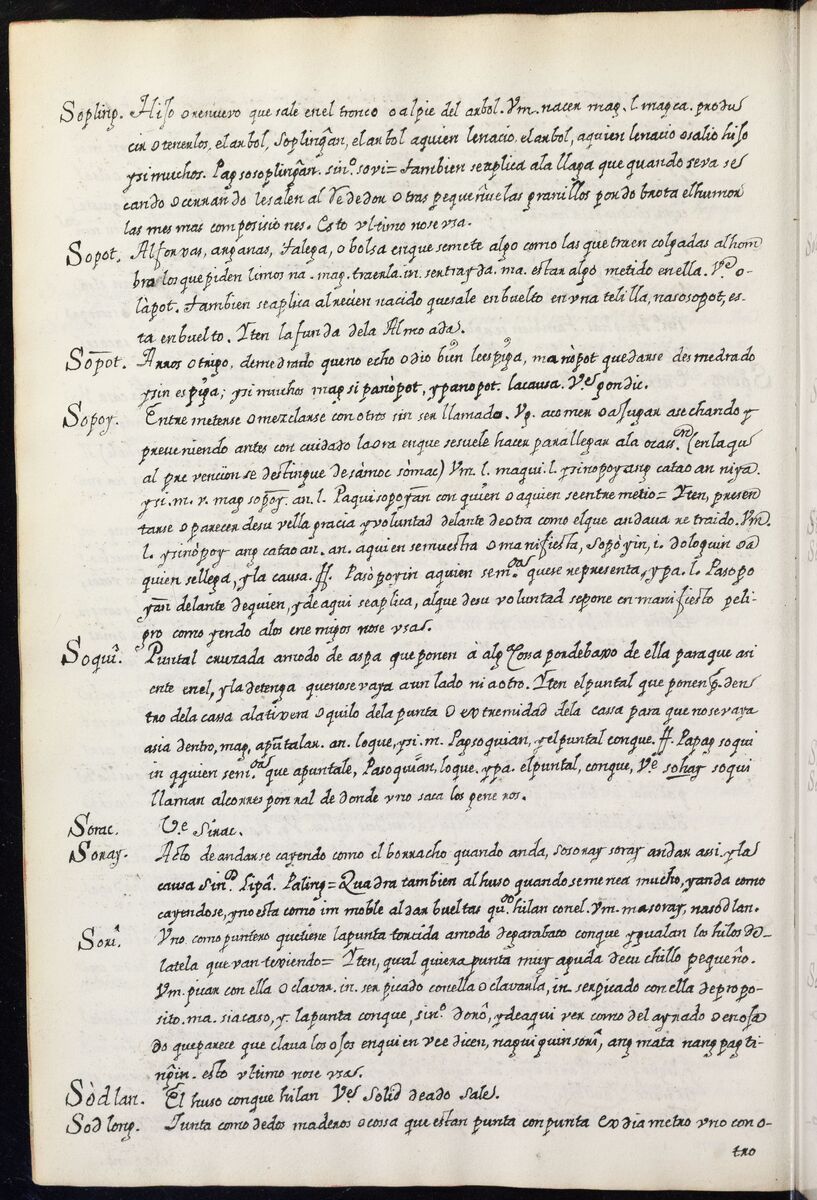 Sopling. Hijo o renuevo que sale en el tronco o al pie del arbol. Vm. nacer mag. l. magca. produ
cir o tenerlos. el arbol, Soplingãn, el arbol a quien le nacio. el arbol, a quien le nacio o salio hijo
y si muchos. Pagsosoplingãn. sinº. sovi = tambien se aplica a la llaga que quando se va se
cando o cerrando le salen al Rededor otras pequeñuelas granillos por do brota el humor
las mesmas composisiones. Esto vltimo no se vsa.
Sopot. Alforxas, arganas, talega, o bolsa en que se mete algo como las que traen colgadas al hom
bro los que piden limosna. mag. traerla. in. ser trayda. ma. estar algo metido en ella. Vᵉ o-
làpot. tambien se aplica al recien nacido que sale enbuelto en vna telilla, nasosopot, es-
ta enbuelto. Yten la funda de la Almoada.
Sopot. Arros o trigo, demedrado que no echo o dio buen le espiga, manòpot quedarse desmedrado
y sin espiga; y si muchos magsipanòpot, y panopot. la causa. Vᵉ gondic.
Sopoy. Entremeterse o mezclarse con otros sin ser llamado. Vg. a comer o a jugar asechando y
preveniendo antes con cuidado la ora en que se suele hacer para llegar a la ocassⁿ (en la qual
al prevencion se destingue de sàmoc sòmac) Vm. l. maqui. l. ysinopoy ang catao an niya.
y si. m. r. mag sopoy. an. l. Paquisopoyan con quien o a quien se entremetio = Yten, presen
tarse o parecer de su vella gracia y voluntad delante de otra como el que andava retraido. Vm.
l. ysinòpoy ang catao an. an. a quien se muestra o manifiesta, sopòyin, i. doloquin o a
quien se llega, y la causa. ff. Pasòpoyin a quien sem.ᵒᵃˢ que se representa, y pa. l. Pasopo
yan delante de quien, y de aqui se aplica, al que de su voluntad se pone en manifiesto peli-
gro como yendo a los enemigos no se vsas.
Soqui. Puntal cruzada a modo de aspa que ponen á alg.ᵃ Cossa por debaxo de ella para que asi
ente en el, y la detenga que no se vaya a un lado ni a otro. Yten el puntal que ponen p. den
tro de la cassa a la tivera o quilo de la punta o extremidad de la cassa para que no se vaya
asia dentro, mag. apũtalar. an. lo que, y si. m. Pagsoquian, y el puntal conque. ff. Papagsoqui
in q quien sem.ᵒᵃˢ que apuntale, Pasoquian, lo que. y pa. el puntal, conque, Vᵉ sohay soqui
llaman al corresponnal de donde vno saca los generos.
Sorac. Vᵉ Sirac.
Soray. Acto de andarse cayendo como el borracho quando anda, sosoray soray andar assi. y la
causa Sinº. Lipâ. Paling = Quadra tambien al huso quando se menea mucho, y anda como
cayendose, y no esta como immoble al dar bueltas qu.ᵈᵒ hilan con el. Vm. masoray, nasòdlan.
Sori. Vno. como puntero que tiene la punta torcida a modo de garabato conque ygualan los hilos de
la tela que van texiendo = Yten, qual quiera punta muy aguda de cuchillo pequeño.
Vm. picar con ella o clavar. in. ser picado con ella o clavarla, in. ser picado con ella de propo-
sito. ma. si a caso, y. la punta conque, sinº. dorô, y de aqui ver como del ayrado o enoja
do que parece que clava los ojos en quien vee dicen, naquiquinsori, ang mata nang pagti-
ngin. esto vltimo no se vsas.
Sòdlan. El huso conque hilan Vᵉ Solid deado sales.
Sodlong. Junta como dedos maderos o cossa que estan punta con punta ex diametro vno con o-
tro